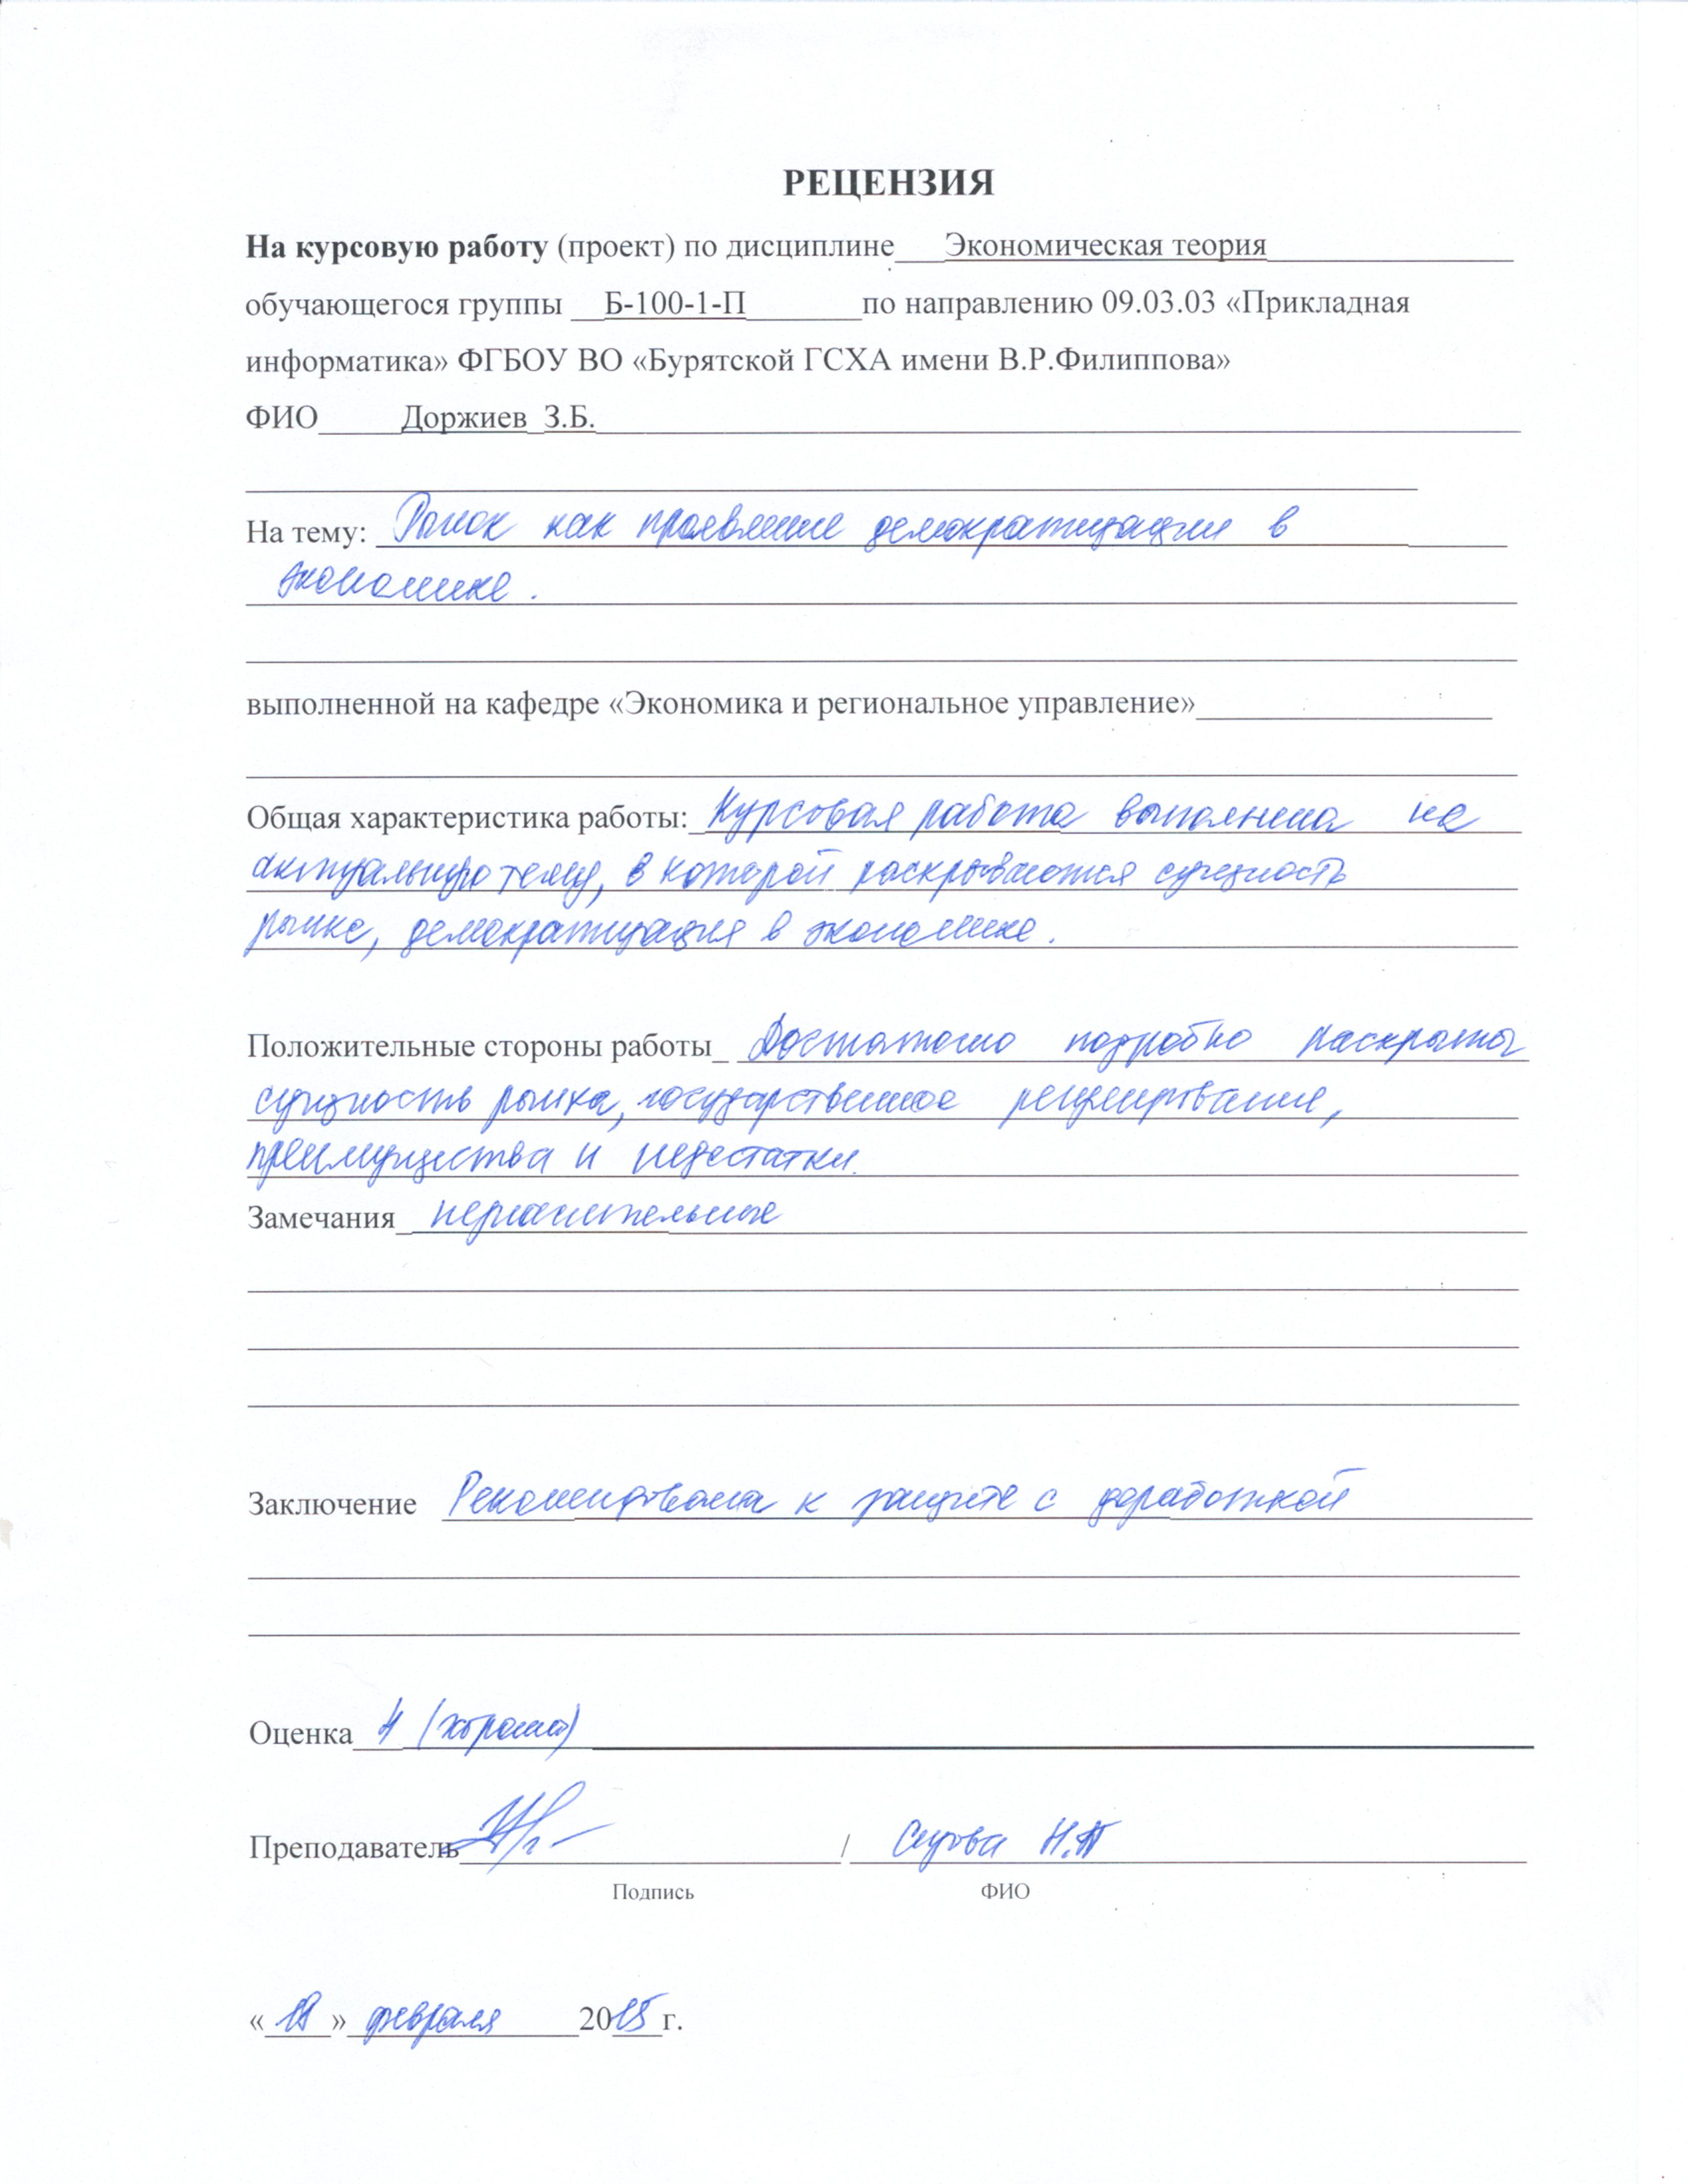 РЕЦЕНЗИЯ
На курсовую работу (проект) по дисциплине Экономическая теория
обучающегося группы Б-100-1-П по направлению 09.03.03 «Прикладная
информатика» ФГБОУ ВО «Бурятской ГСХА имени В.Р.Филиппова»
ФИО Доржиев З.Б.
На тему: Рынок как проявление демократизации в
экономике.
выполненной на кафедре «Экономика и региональное управление»
Общая характеристика работы: Курсовая работа выполнена на
актуальную тему, в которой раскрываются сущность
рынка, демократизация в экономике.
Положительные стороны работы Достаточно подробно раскрыты
сущность рынка, государственное
преимущества и недостатки.
Замечания
Заключение Рекомендована к защите с доработкой
Оценка 4 (хорошо)
Преподаватель / Н.П
Подпись ФИО
« » февраля 2015 г.